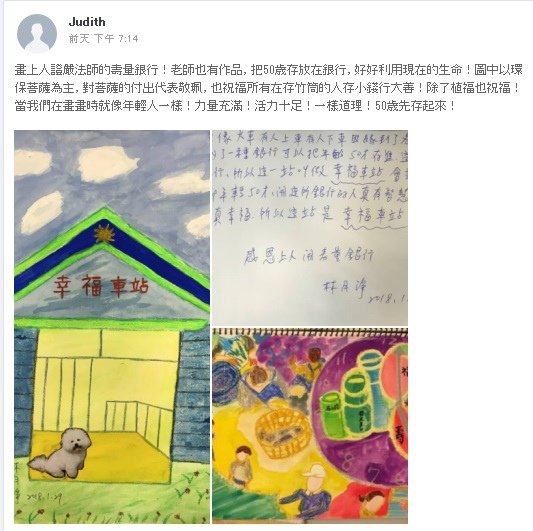 Judith
前天 下午 7:14
畫上人證嚴法師的壽量銀行！老師也有作品，把50歲存放在銀行，好好利用現在的生命！圖中以環
保菩薩為主，對菩薩的付出代表敬珮，也祝福所有在存竹筒的人存小錢行大善！除了植福也祝福！
當我們在畫畫時就像年輕人一樣！力量充滿！活力十足！一樣道理！50歲先存起來！
幸福車站
2018.1.29
像火車有人上車有人下車
了一種銀行可以把年齡50才存進
行，所以這一站叫做 幸福車站
年輕50才，開這所銀行的人真有智慧
真幸福，所以這站是 幸福車站
感恩上人開壽量銀行
林月淨
2018.1.
壽